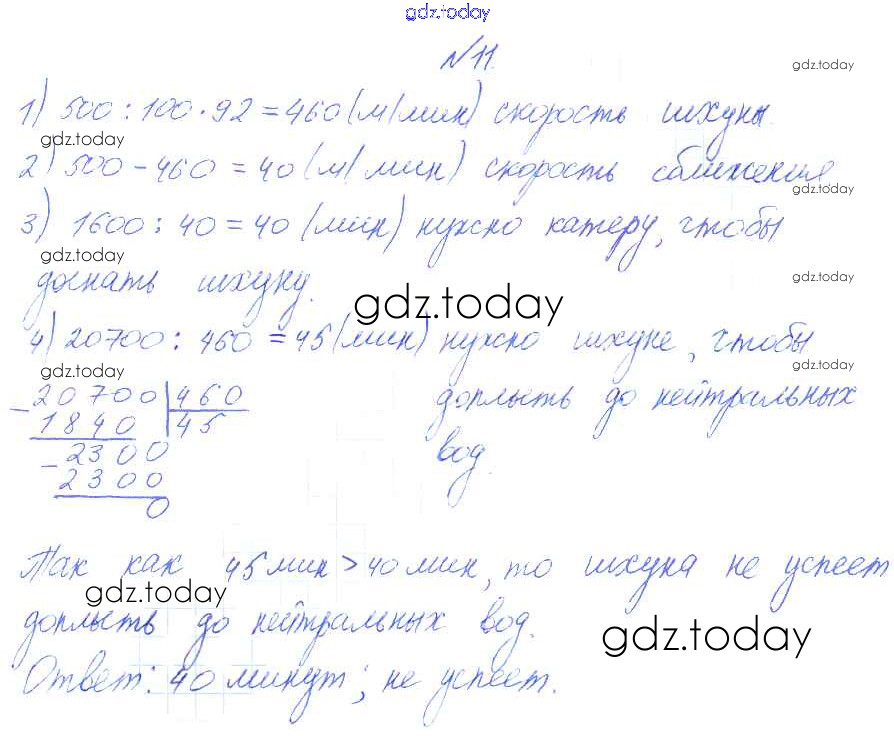 gdz.today
№11.
gdz.today
1) 500 : 100 · 92 = 460 (м/мин) скорость шхуны.
gdz.today
2) 500 - 460 = 40 (м/мин) скорость сближения
gdz.today
3) 1600 : 40 = 40 (мин) нужно катеру, чтобы
gdz.today
gdz.today
догнать шхуну.
gdz.today
4) 20700 : 460 = 45 (мин) нужно шхуне, чтобы
gdz.today
gdz.today
доплыть до нейтральных
вод.
- 20700 | 460
1840 | 45
- 2300
2300
0
Так как 45 мин > 40 мин, то шхуна не успеет
gdz.today
доплыть до нейтральных вод.
gdz.today
Ответ: 40 минут; не успеет.